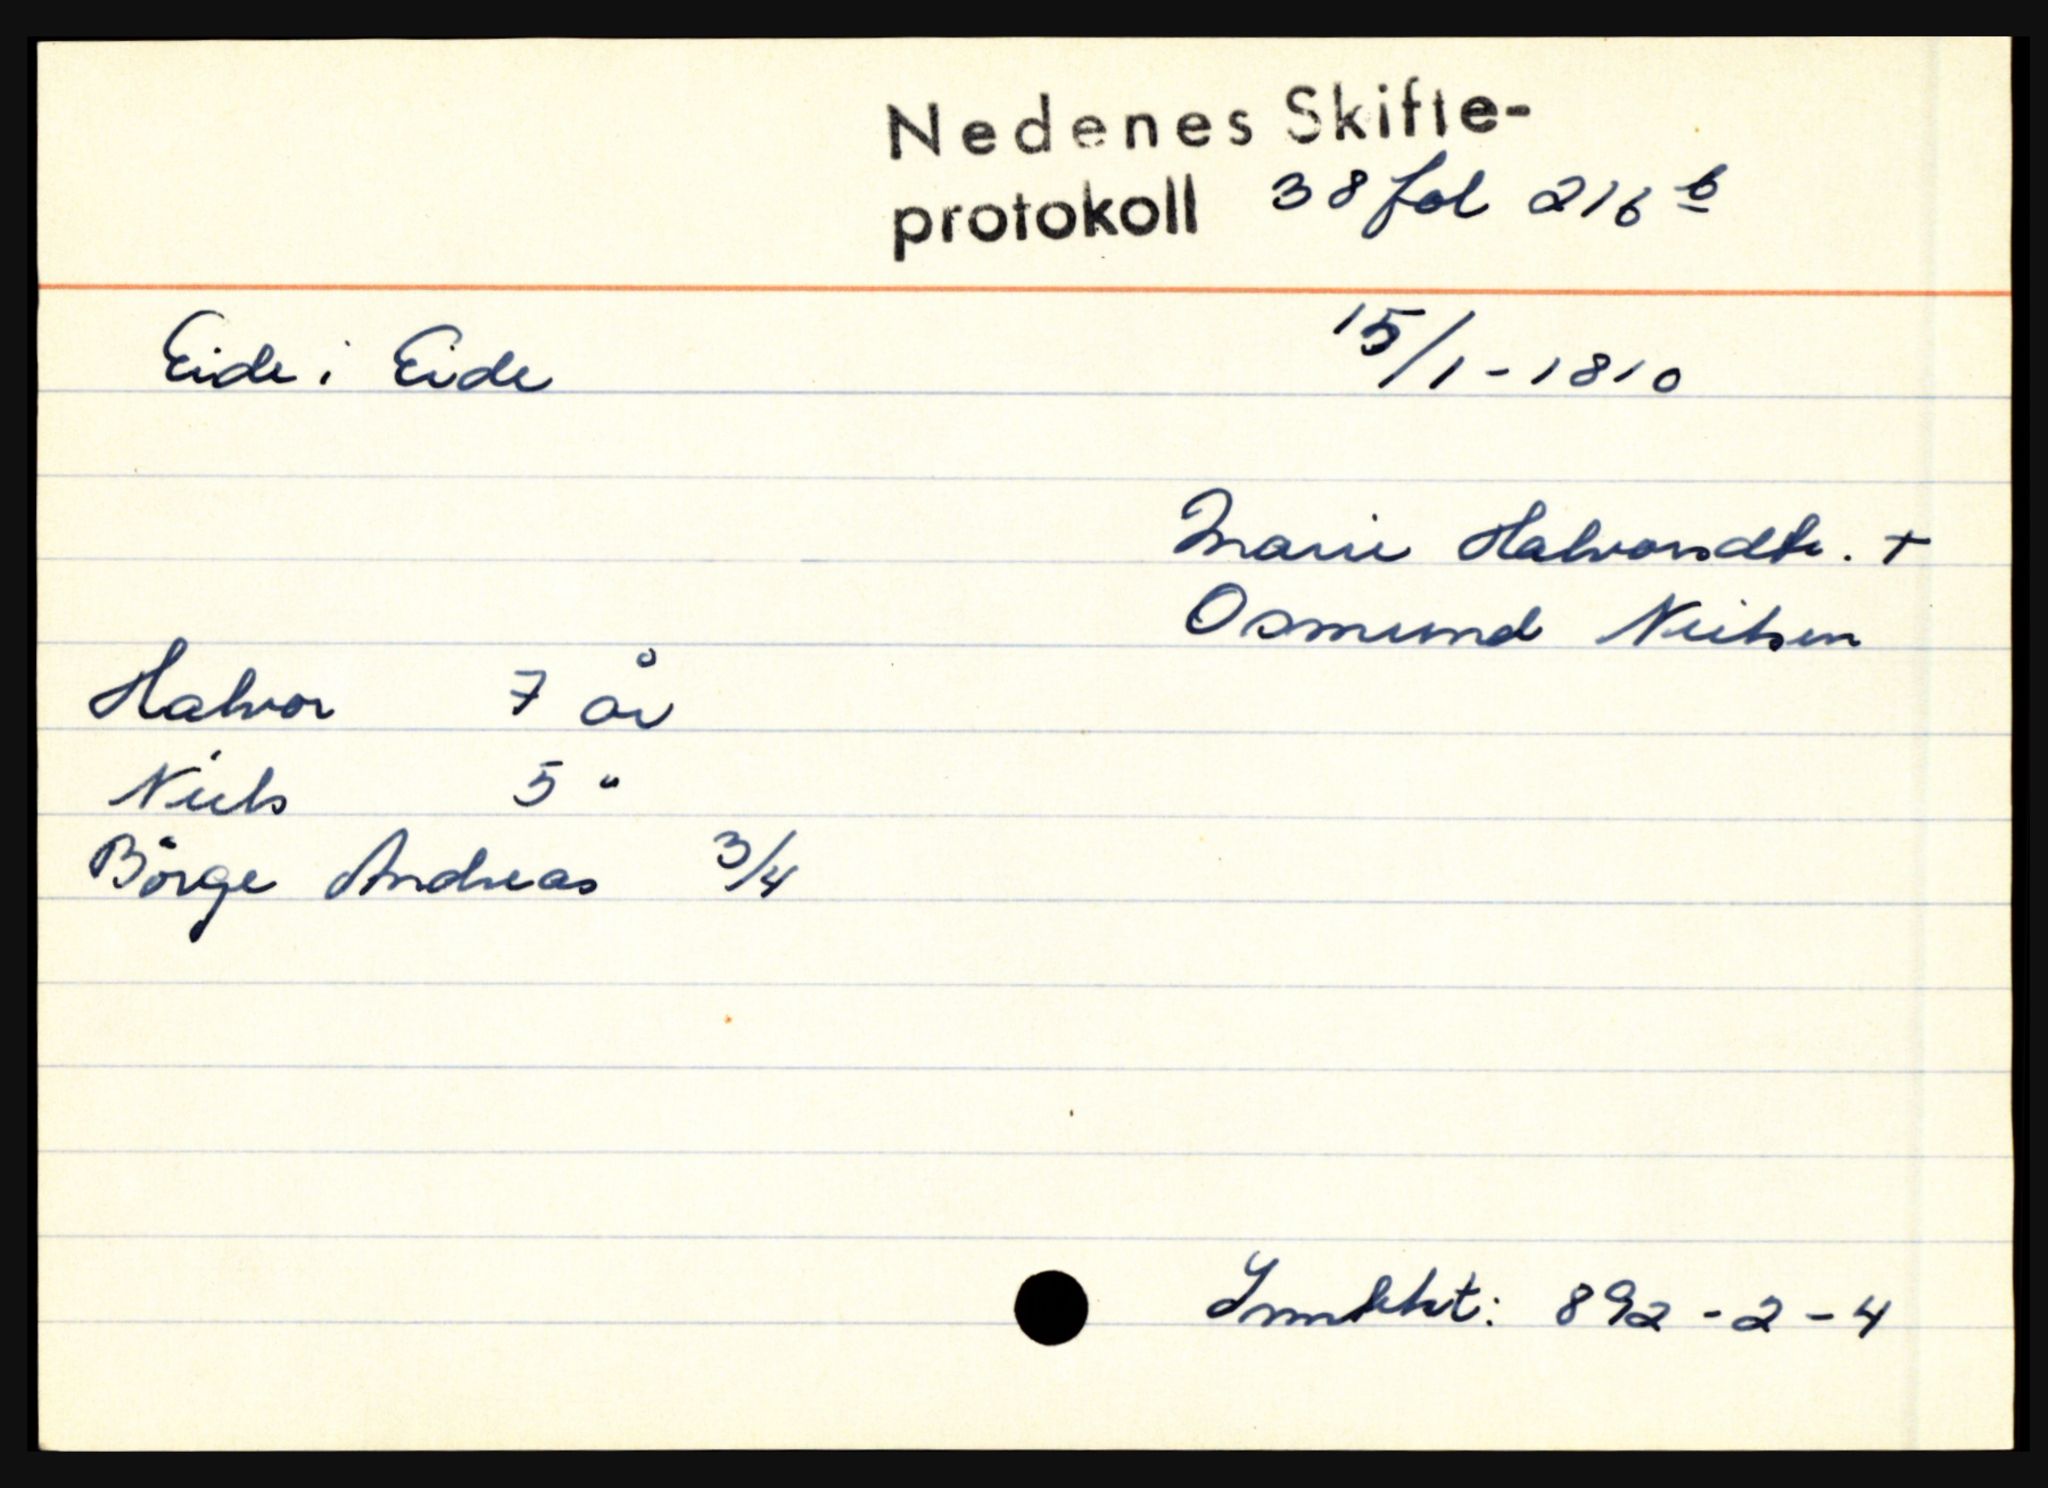 Nedenes Skifte-
protokoll 38 fol 216 b
Eide i Eide 15/1-1810
Marie Halvorsdtr. +
Osmund Nielsen
Halvor 7 år
Niels 5 "
Börge Andreas 3/4
: 892-2-4